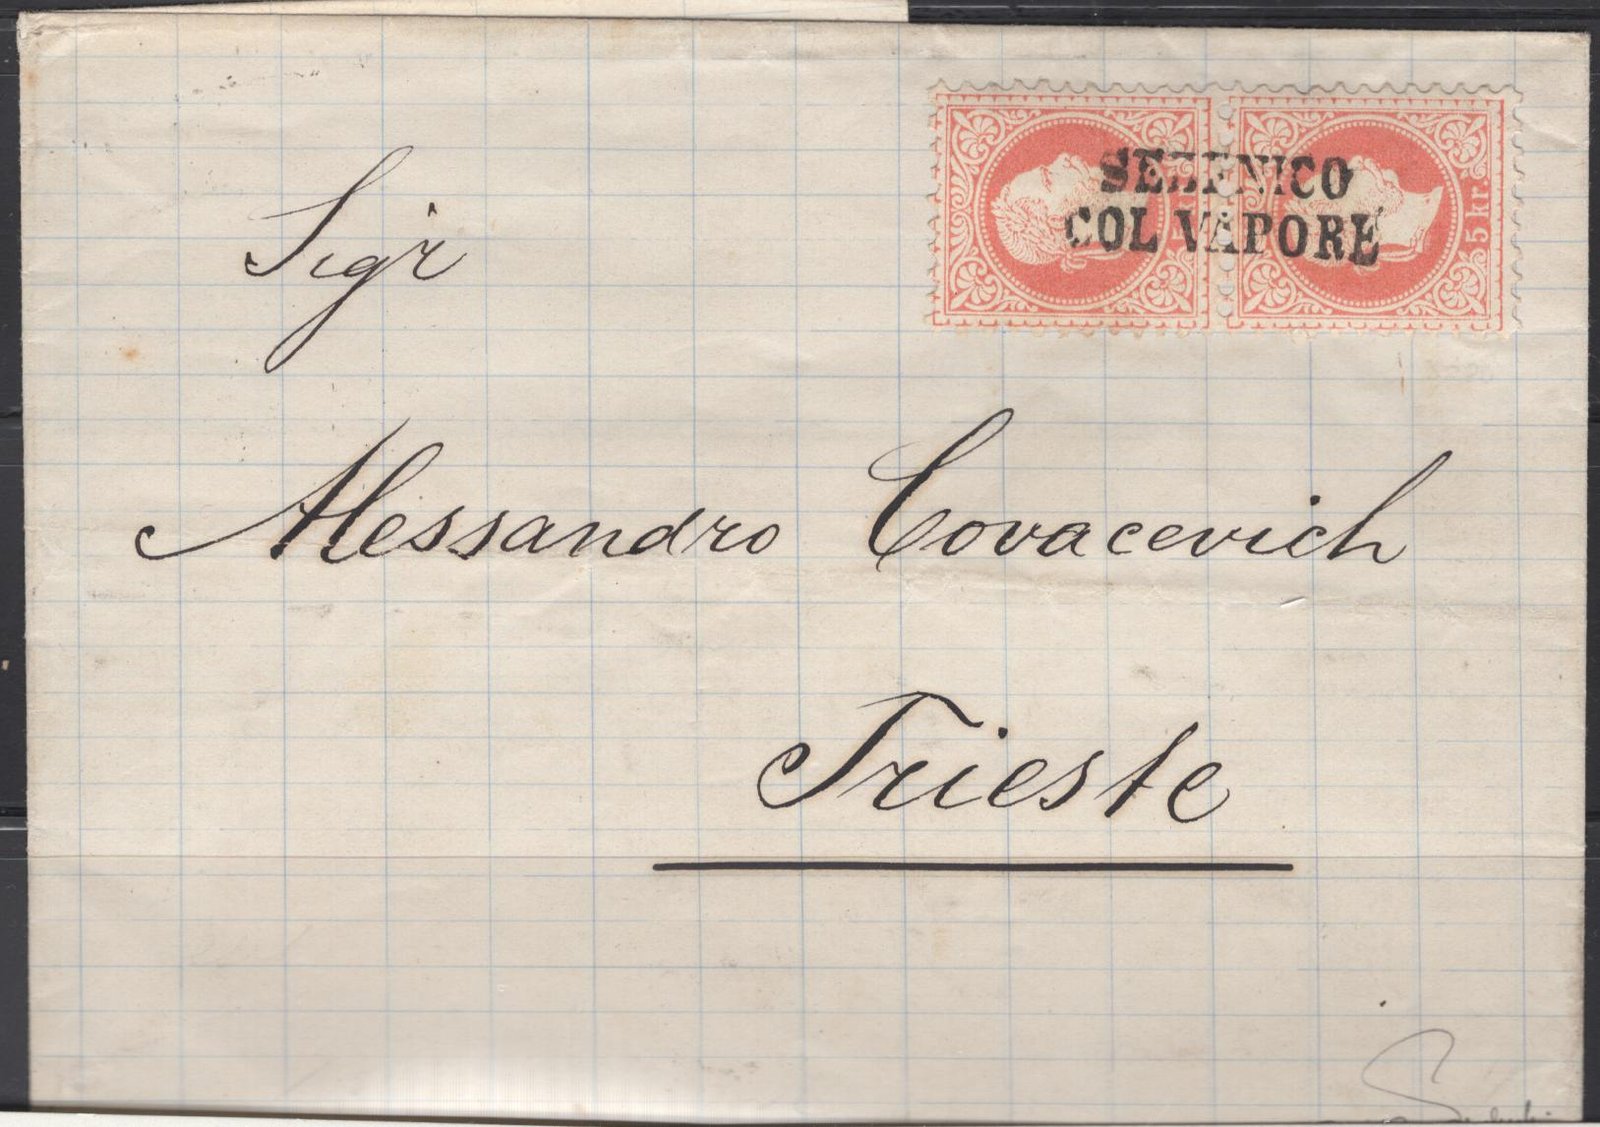 SEBENICO
COL VAPORE
5 kr.
Sigr
Alessandro Covacevich
Trieste